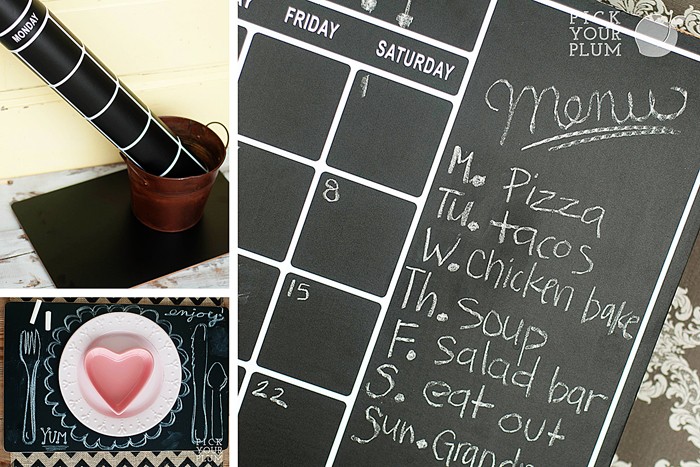 MONDAY
FRIDAY
SATURDAY
PICK
YOUR
PLUM
1
8
15
22
Menu
M. Pizza
Tu. tacos
W. Chicken bake
Th. Soup
F. Salad bar
S. eat out
Sun.
enjoy!
YUM
PICK
YOUR
PLUM